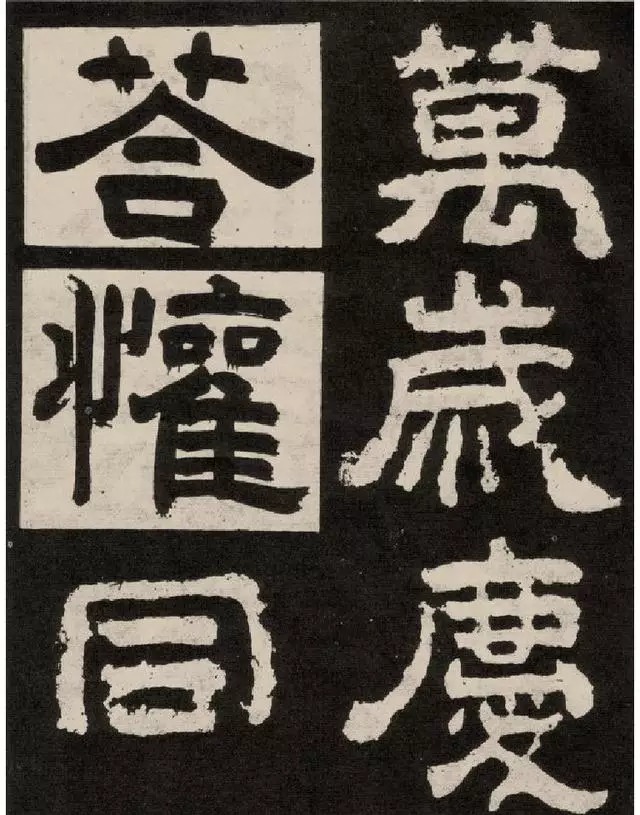 萬歲慶
荅懽同